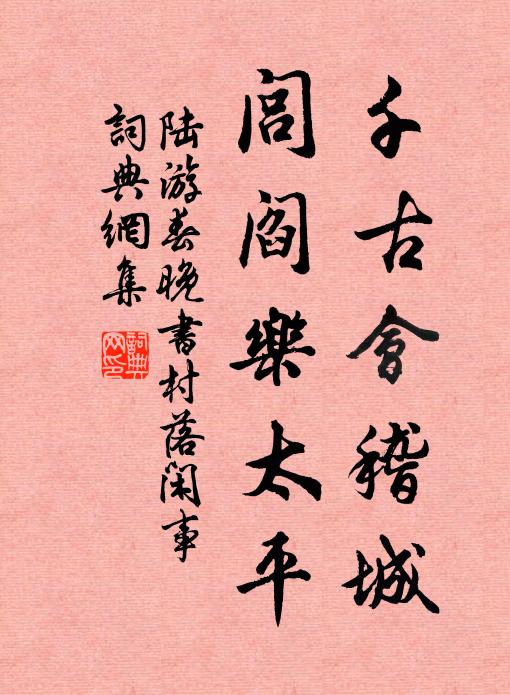 千古會稽城
閭閻樂太平
陆游春晚書村落閑事
詞典網集
詞典
网印